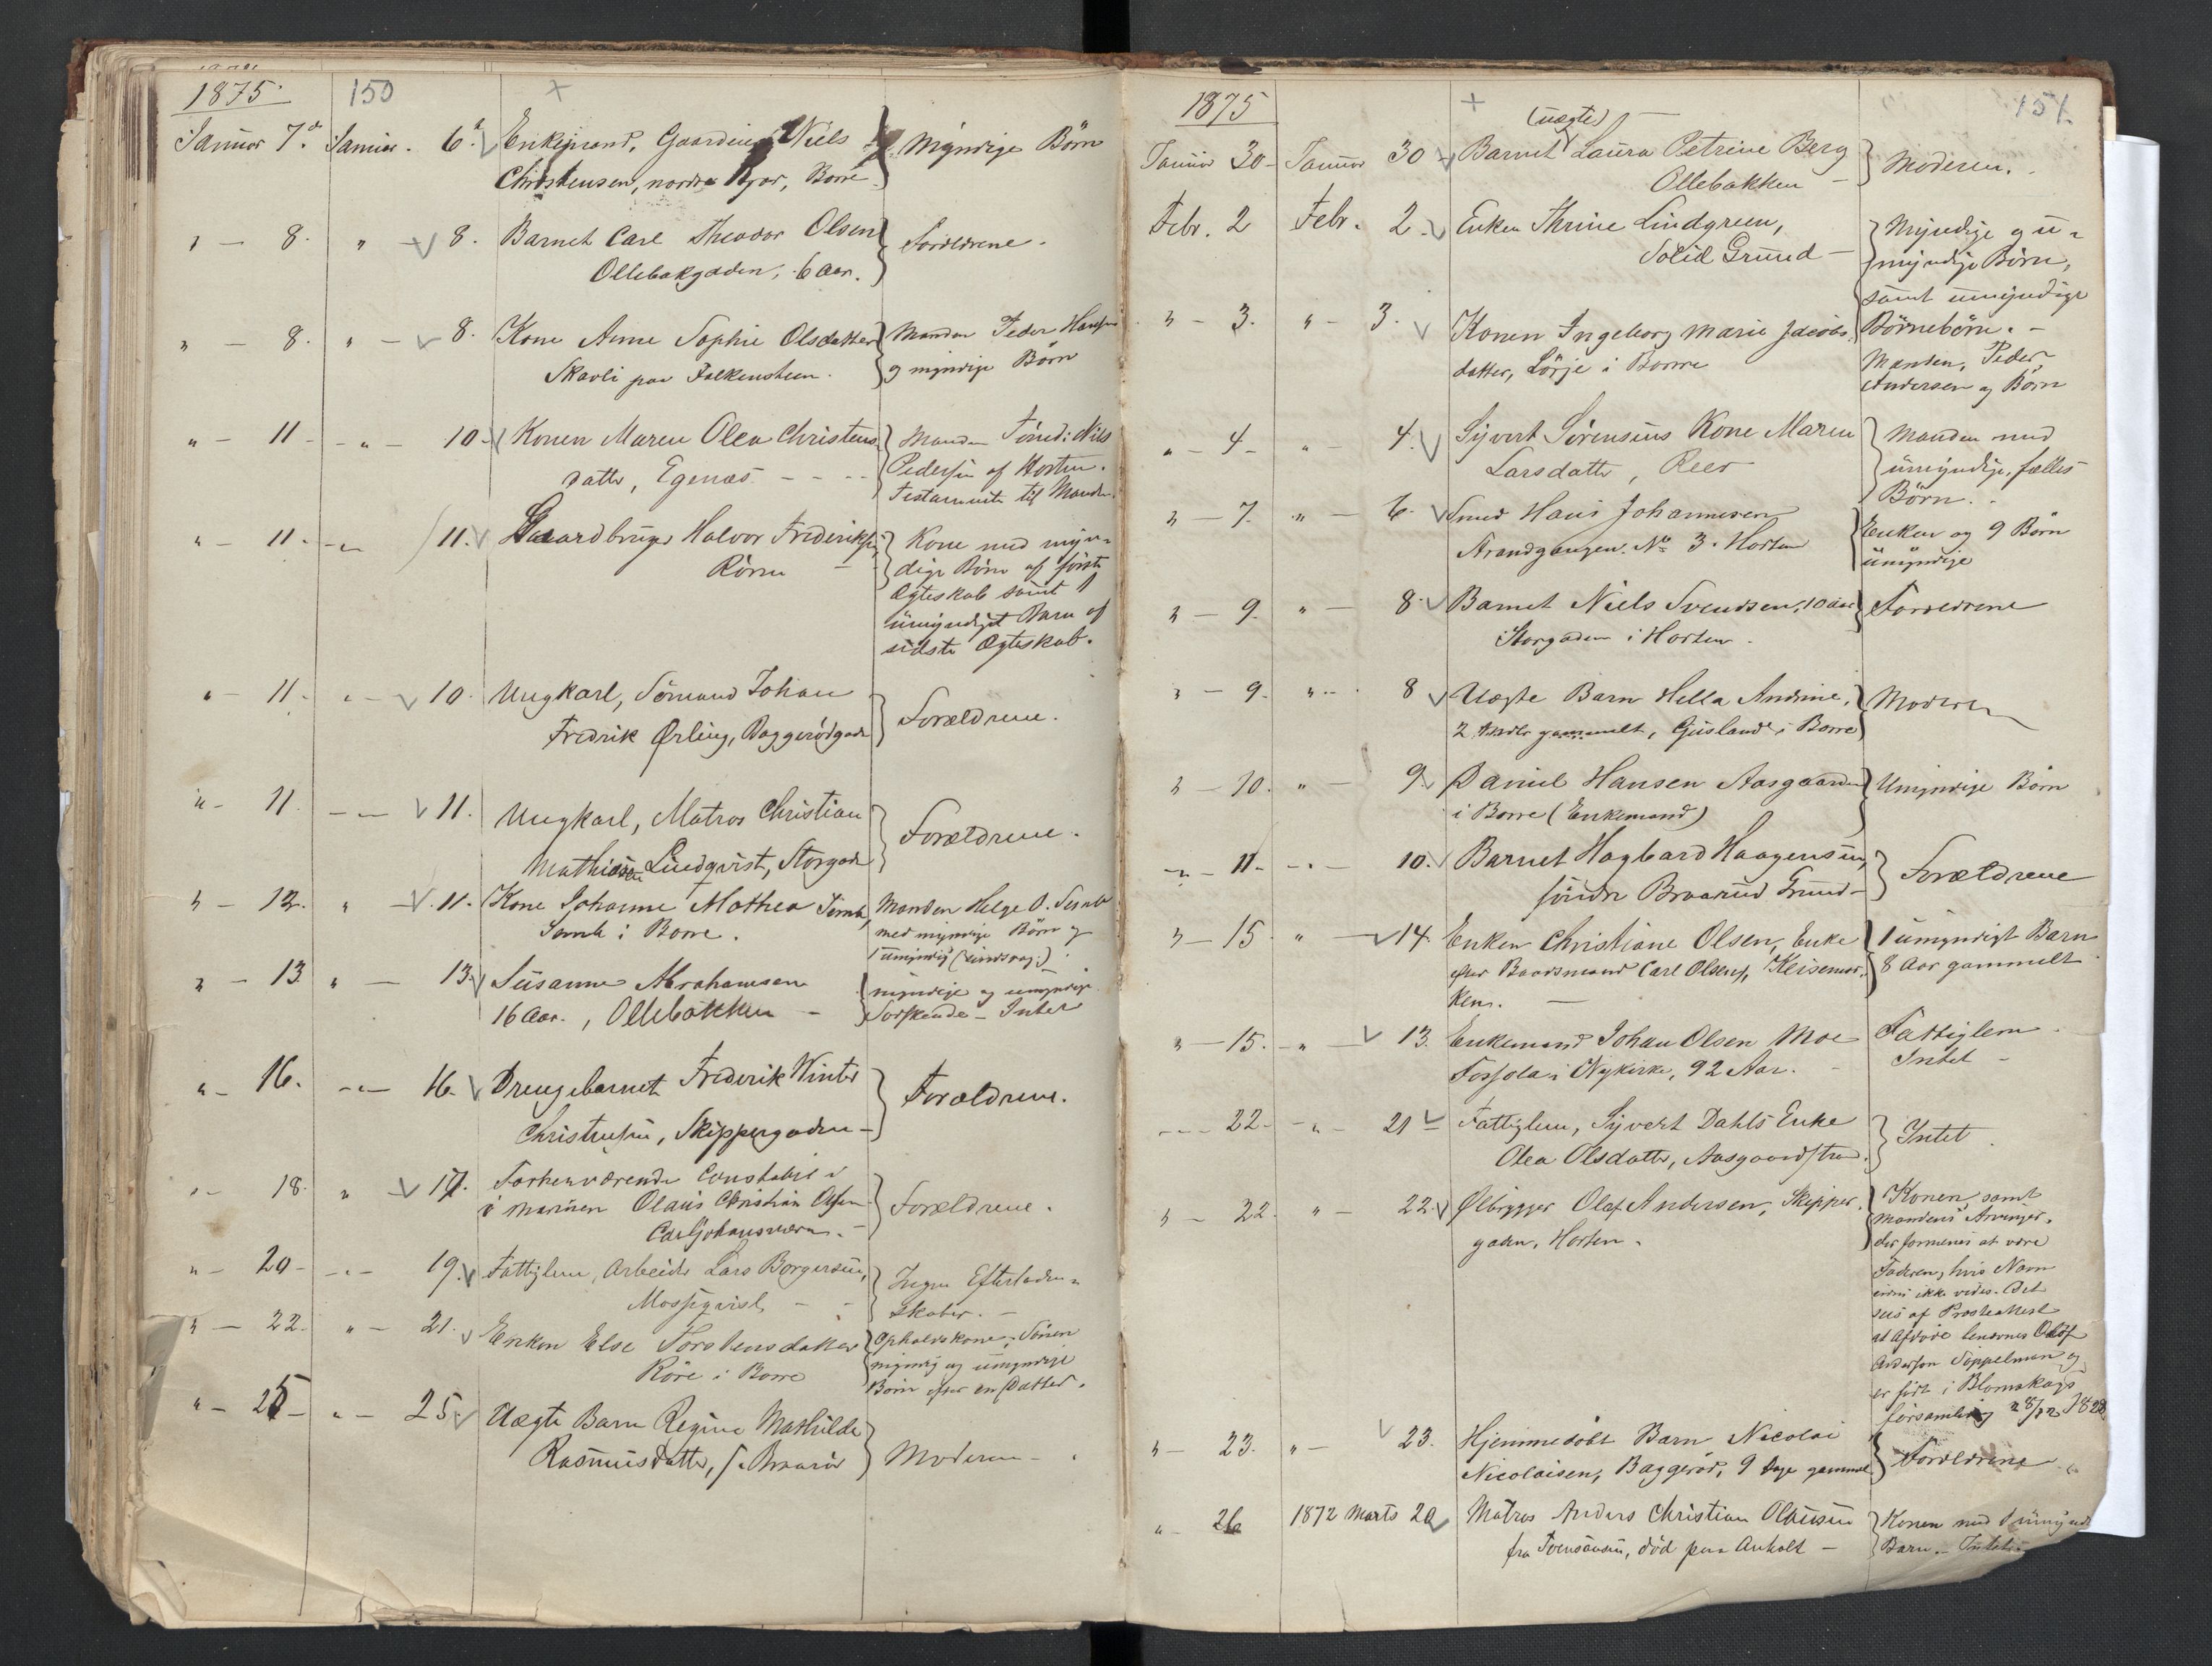 1875
150
+
Januar 7de Januar. 6te Enkemand, Gaardbruger Niels Myndige Børn
Christensen, nordre Borre
" — 8. " — 8. Barnet Carl Theodor Olsen Forældrene.
Ollebakgaden, 6 Aar.
" — 8. " — 8. Kone Anne Sophie Olsdatter Manden Peder Hansen
Skavli paa Falkensteen. og myndige Børn
" — 11 — " — 10. Konen Maren Olea Christens Manden Tømd: Nils
datter, Egenæs — — Pedersen af Horten.
Testamente til Manden.
" — 11. — " — 11. Gaardbruger Halvor Frederiksen Kone med myn-
Rörne — dige Børn af første
Ægteskab samt 1
umyndigt Barn af
sidste Ægteskab.
" — 11. " — 10. Ungkarl, Sømand Johan
Fredrik Ørling, Baggerødgaden Forældrene.
" — 11. — " — 11. Ungkarl, Matros Christian
Mathiesen Lindqvist, Storgaden Forældrene.
" — 12. " — 11. Kone Johanne Mathea Manden Helge O.
i Borre. med myndige Børn og
1 umyndig
" — 13. " — 13. Susanne Abrahamsen myndige og umyndige
16 Aar., Ollebakken — Søskende — Intet
" — 16. — " — 16. Drengebarnet Frederik Winter
Christensen, Skippergaden — Forældrene.
" — 18. " — 17. Forhenværende Constabel
i Marinen Olaus Christian Olsen Forældrene.
Carljohansværn. —
" — 20 — — " — 19. Fattiglem, Arbeider Lars Borgersen, Ingen Efterladen-
— — skaber. —
" — 22. " — 21. Enken Else Torstensdatter Opholdskone; Sønen
Röre i Borre myndig og umyndige
Børn efter en Datter.
" — 25 — " — 25. Uægte Barn Regine Mathilde
Rasmusdatter, Moderen —
1875
+
151.
(uægte) —
Januar 30 — Januar 30 Barnet Laura Petrine Berg Moderen.
Ollebakken —
Febr. 2 Febr. 2. Enken Thrine Lindgreen, Myndige og u-
Solid Grund — myndige Børn,
samt umyndige
" — 3. " — 3. Konen Ingeborg Marie Jacobs- Børnebørn. —
datter, Lörje i Borre Manden, Peder
Andersen og Børn
" — 4 — " 4. Syvert Sørensens Kone Maren Manden med
Larsdatter, umyndige, fælles
Børn.
" — 7. " — 6. Smed Hans Johannesen Enken og 9 Børn
Strandgangen No 3. Horten umyndige
" — 9. " — 8. Barnet Niels Svendsen, 10 Aar Forældrene
Storgaden i Horten.
" — 9. " — 8 Uægte Barn Hella Andrine, Moderen
2 gammelt, i Borre
" — 10. " — 9. Daniel Hansen Aasgaarden Umyndige Børn
i Borre (Enkemand)
" — 11 — " — 10. Barnet Hagbard Haagensen,
söndre Braarud Grund — Forældrene
" — 15 " — 14. Enken Christiane Olsen, Enke 1 umyndigt Barn
efter Baadsmand Carl Olsen, Keisemar- 8 Aar gammelt
ken. —
" — 15. — " — 13. Enkemand Johan Olsen Moe Fattiglem.
i Nykirke, 92 Aar. — Intet —
" — 22. — " — 21 Fattiglem, Syvert Dahls Enke
Olea Olsdatter, Aasgaardstrand. Intet.
" — 22. " — 22. Ølbrygger Olaf Andersen, Skipper- Konen samt
gaden, Horten. Mandens Arvinger,
der formenes at være
Faderen, hvis Navn
endnu ikke vides. Det
sees af Præsteattest
at Afdøde benævnes Olof
Anderson Sippelman og
er født i Blomskogs
forsamling 28/12 1828
" — 23. " — 23. Hjemmedöbt Barn Nicolai
Nicolaisen, Baggeröd, 9 Dage gammel Forældrene
" — 26 1872 Marts 20 Matros Anders Christian Olausen Konen med 1 umyndigt
fra død paa Anholt — Barn. — Intet.